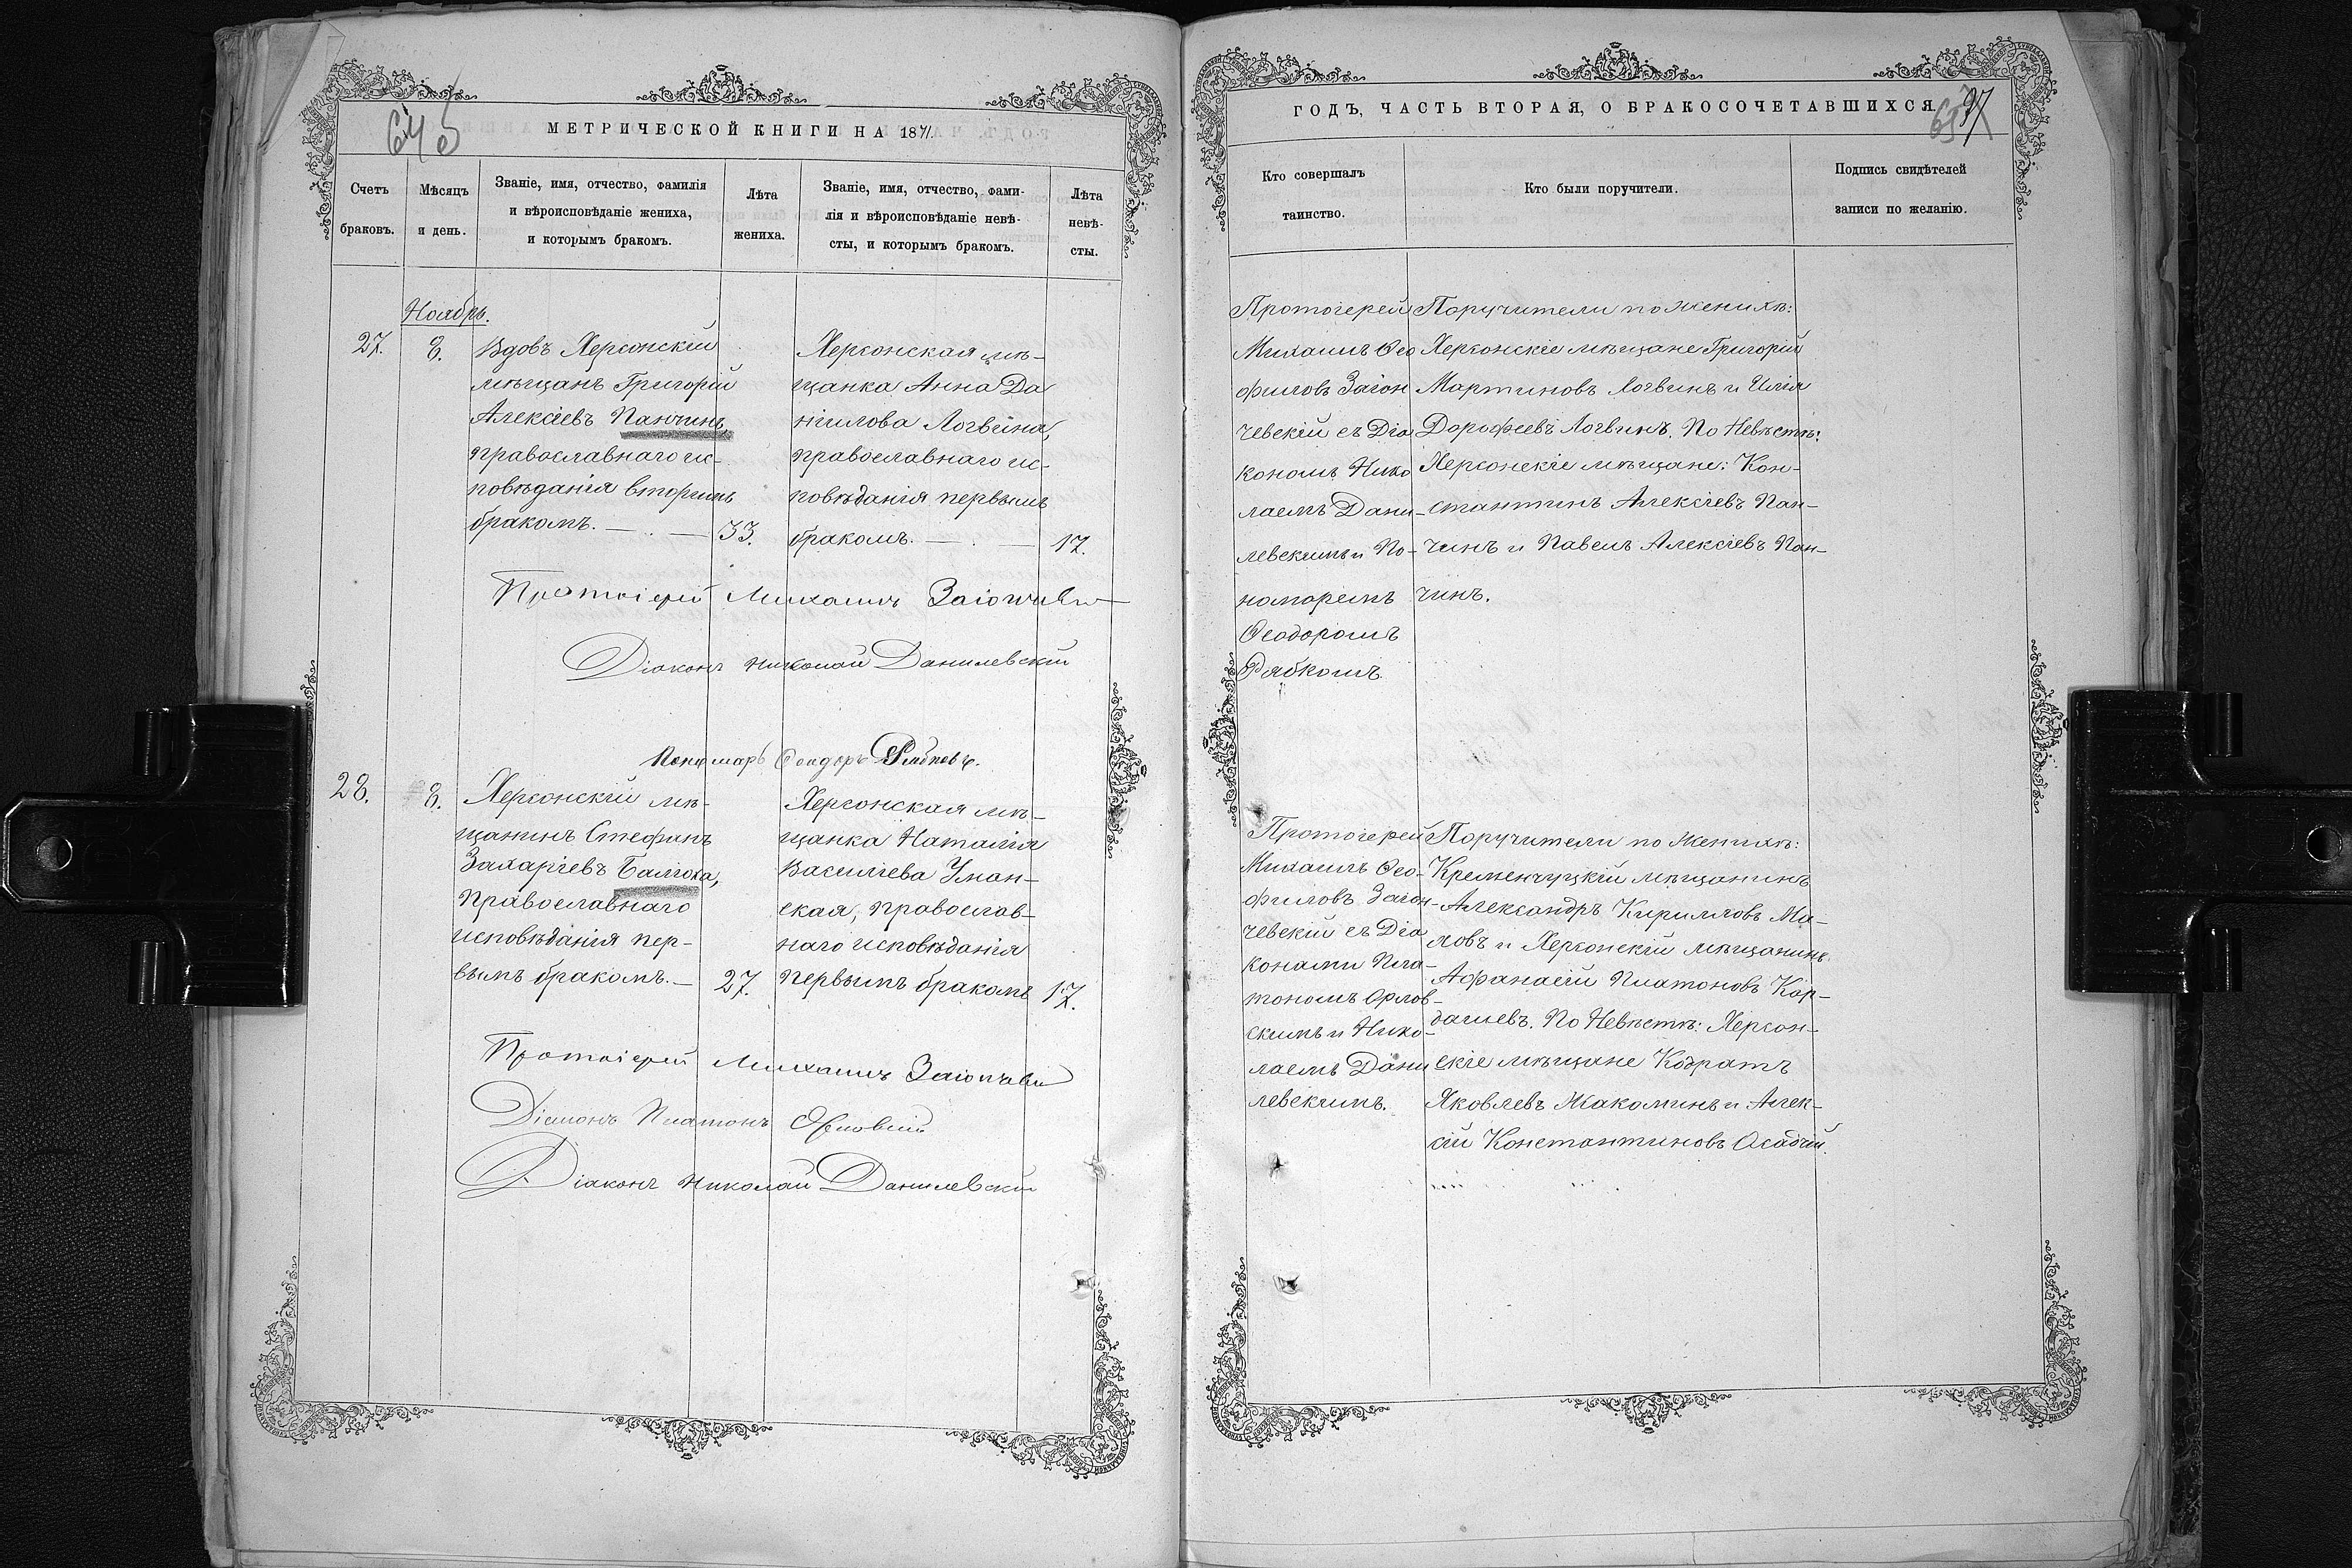 МЕТРИЧЕСКОЙ КНИГИ НА 1871.
Счетъ браковъ.
Мѣсяцъ и день.
Званіе, имя, отчество, фамилія
и вѣроисповѣданіе жениха,
и которымъ бракомъ.
Лѣта жениха.
Званіе, имя, отчество, фами-
лія и вѣроисповѣданіе невѣ-
сты, и которымъ бракомъ.
Лѣта невѣ-
сты.
Ноябрь.
27.
8.
Вдовъ Херсонскій
мѣщанъ Григорій
Алексіевъ Панчинъ,
православнаго ис-
повѣданія вторымъ
бракомъ.
33.
Херсонская мѣ-
щанка Анна Да
ніилова Логвина,
православнаго ис-
повѣданія первымъ
бракомъ.
17.
Протоіерей Михаилъ
Діаконъ Николай Данилевскій
Пономарь Ѳеодоръ
28.
8.
Херсонскій мѣ-
щанинъ Стефанъ
Захаріевъ Балюха,
Православнаго
исповѣданія пер-
вымъ бракомъ.
27.
Херсонская мѣ-
щанка Наталія
Василіева Уман-
ская, православ-
наго исповѣданія
первымъ бракомъ
17.
Протоіерей Михаилъ
Діаконъ Платонъ Орловскій
Діаконъ Николай Данилевскій
ГОДЪ, ЧАСТЬ ВТОРАЯ, О БРАКОСОЧЕТАВШИХСЯ
97
Кто совершалъ
таинство.
Кто были поручители.
Подпись свидѣтелей
записи по желанію.
Протоіерей
Михаилъ Ѳео
филовъ Заіон
чевскій съ Діа
кономъ Нико
лаемъ Дани-
левскимъ и По-
номаремъ
Ѳеодоромъ
Рябкомъ
Поручители по Женихѣ:
Херсонскіе мѣщане Григорій
Мартиновъ Логвинъ и Илія
Дорофеевъ Логвинъ. По Невѣстѣ:
Херсонскіе мѣщане: Кон-
стантинъ Алексіевъ Пан-
чинъ и Павелъ Алексіевъ Пан-
чинъ.
Протоіерей
Михаилъ Ѳео-
филовъ Заіон-
чевскій съ Діа
конами Пла-
тономъ Орлов-
скимъ и Нико-
лаемъ Дани
левскимъ.
Поручители по Женихѣ:
Кременчуцкій мѣщанинъ
Александръ Кирилловъ Ма-
ловъ и Херсонскій мѣщанинъ
Афанасій Платоновъ Кар-
дашевъ. По Невѣстѣ: Херсон-
скіе мѣщане Кодратъ
Яковлевъ Жакоминъ и Алек-
сій Константиновъ Осадчій.